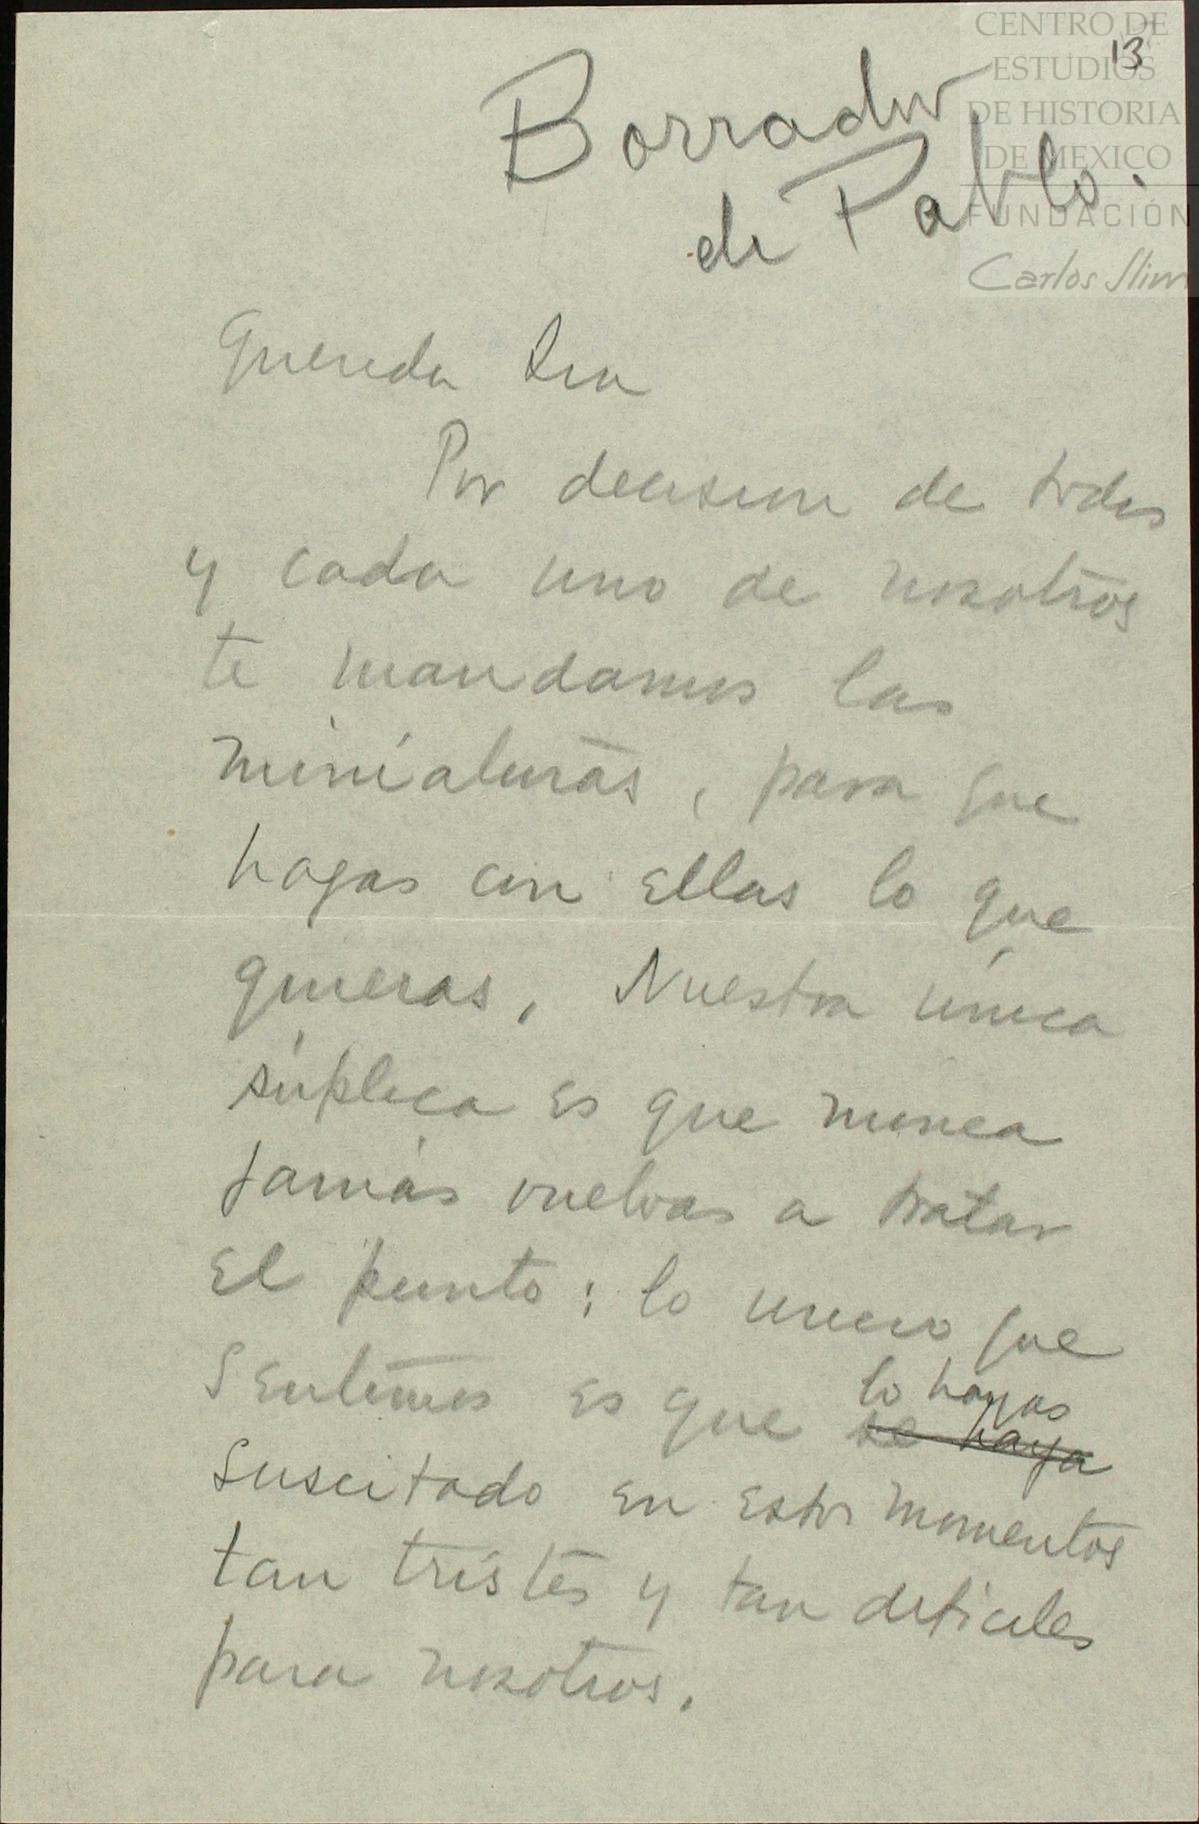 CENTRO DE
ESTUDIOS
DE HISTORIA
DE MEXICO
FUNDACIÓN
Carlos Slim
13
Borrador
de Pablo.
Querida
Por decision de todos
y cada uno de nosotros
te mandamos las
miniaturas, para que
hagas con ellas lo que
quieras. Nuestra única
súplica es que nunca
jamás vuelvas a tratar
el punto; lo unico que
sentimos es que lo hayas
se haya
suscitado en estos momentos
tan tristes y tan dificiles
para nosotros.